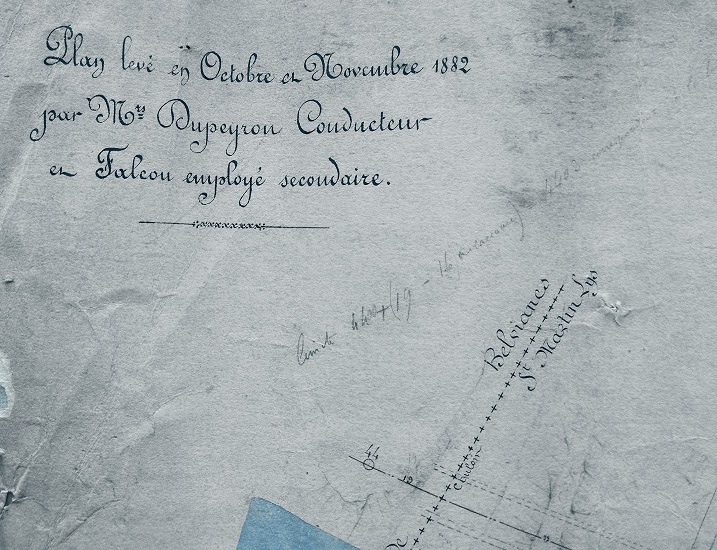 Plan levé en Octobre et Novembre 1882
par Mrs Dupeyron Conducteur
et Falcou employé secondaire.
limite
Belvianes
St Martin Lys
44
19
de